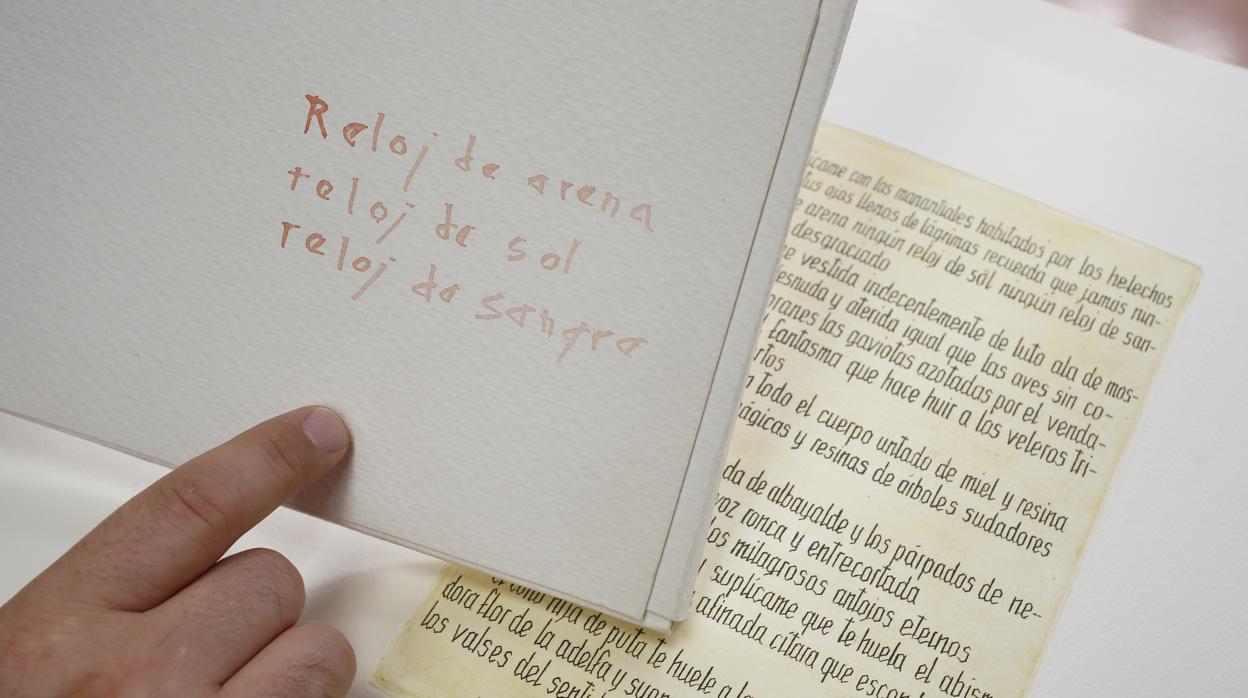 Reloj de arena
reloj de sol
reloj de sangre
con los manantiales habitados por los helechos
ojos llenos de lágrimas recuerda que jamás nin-
arena ningún reloj de sol ningún reloj de san-
desgraciado
vestida indecentemente de luto ala de mos-
y aterida igual que las aves sin co-
las gaviotas azotadas por el venda-
fantasma que hace huir a los veleros tri-
todo el cuerpo untado de miel y resina
y resinas de árboles sudadores
de albayalde y los párpados de ne-
voz ronca y entrecortada
los milagrosos antojos eternos
suplícame que te huela el abism
afinada cítara que escon
coño hija de puta te huele a la
dora flor de la adelfa y
los valses del